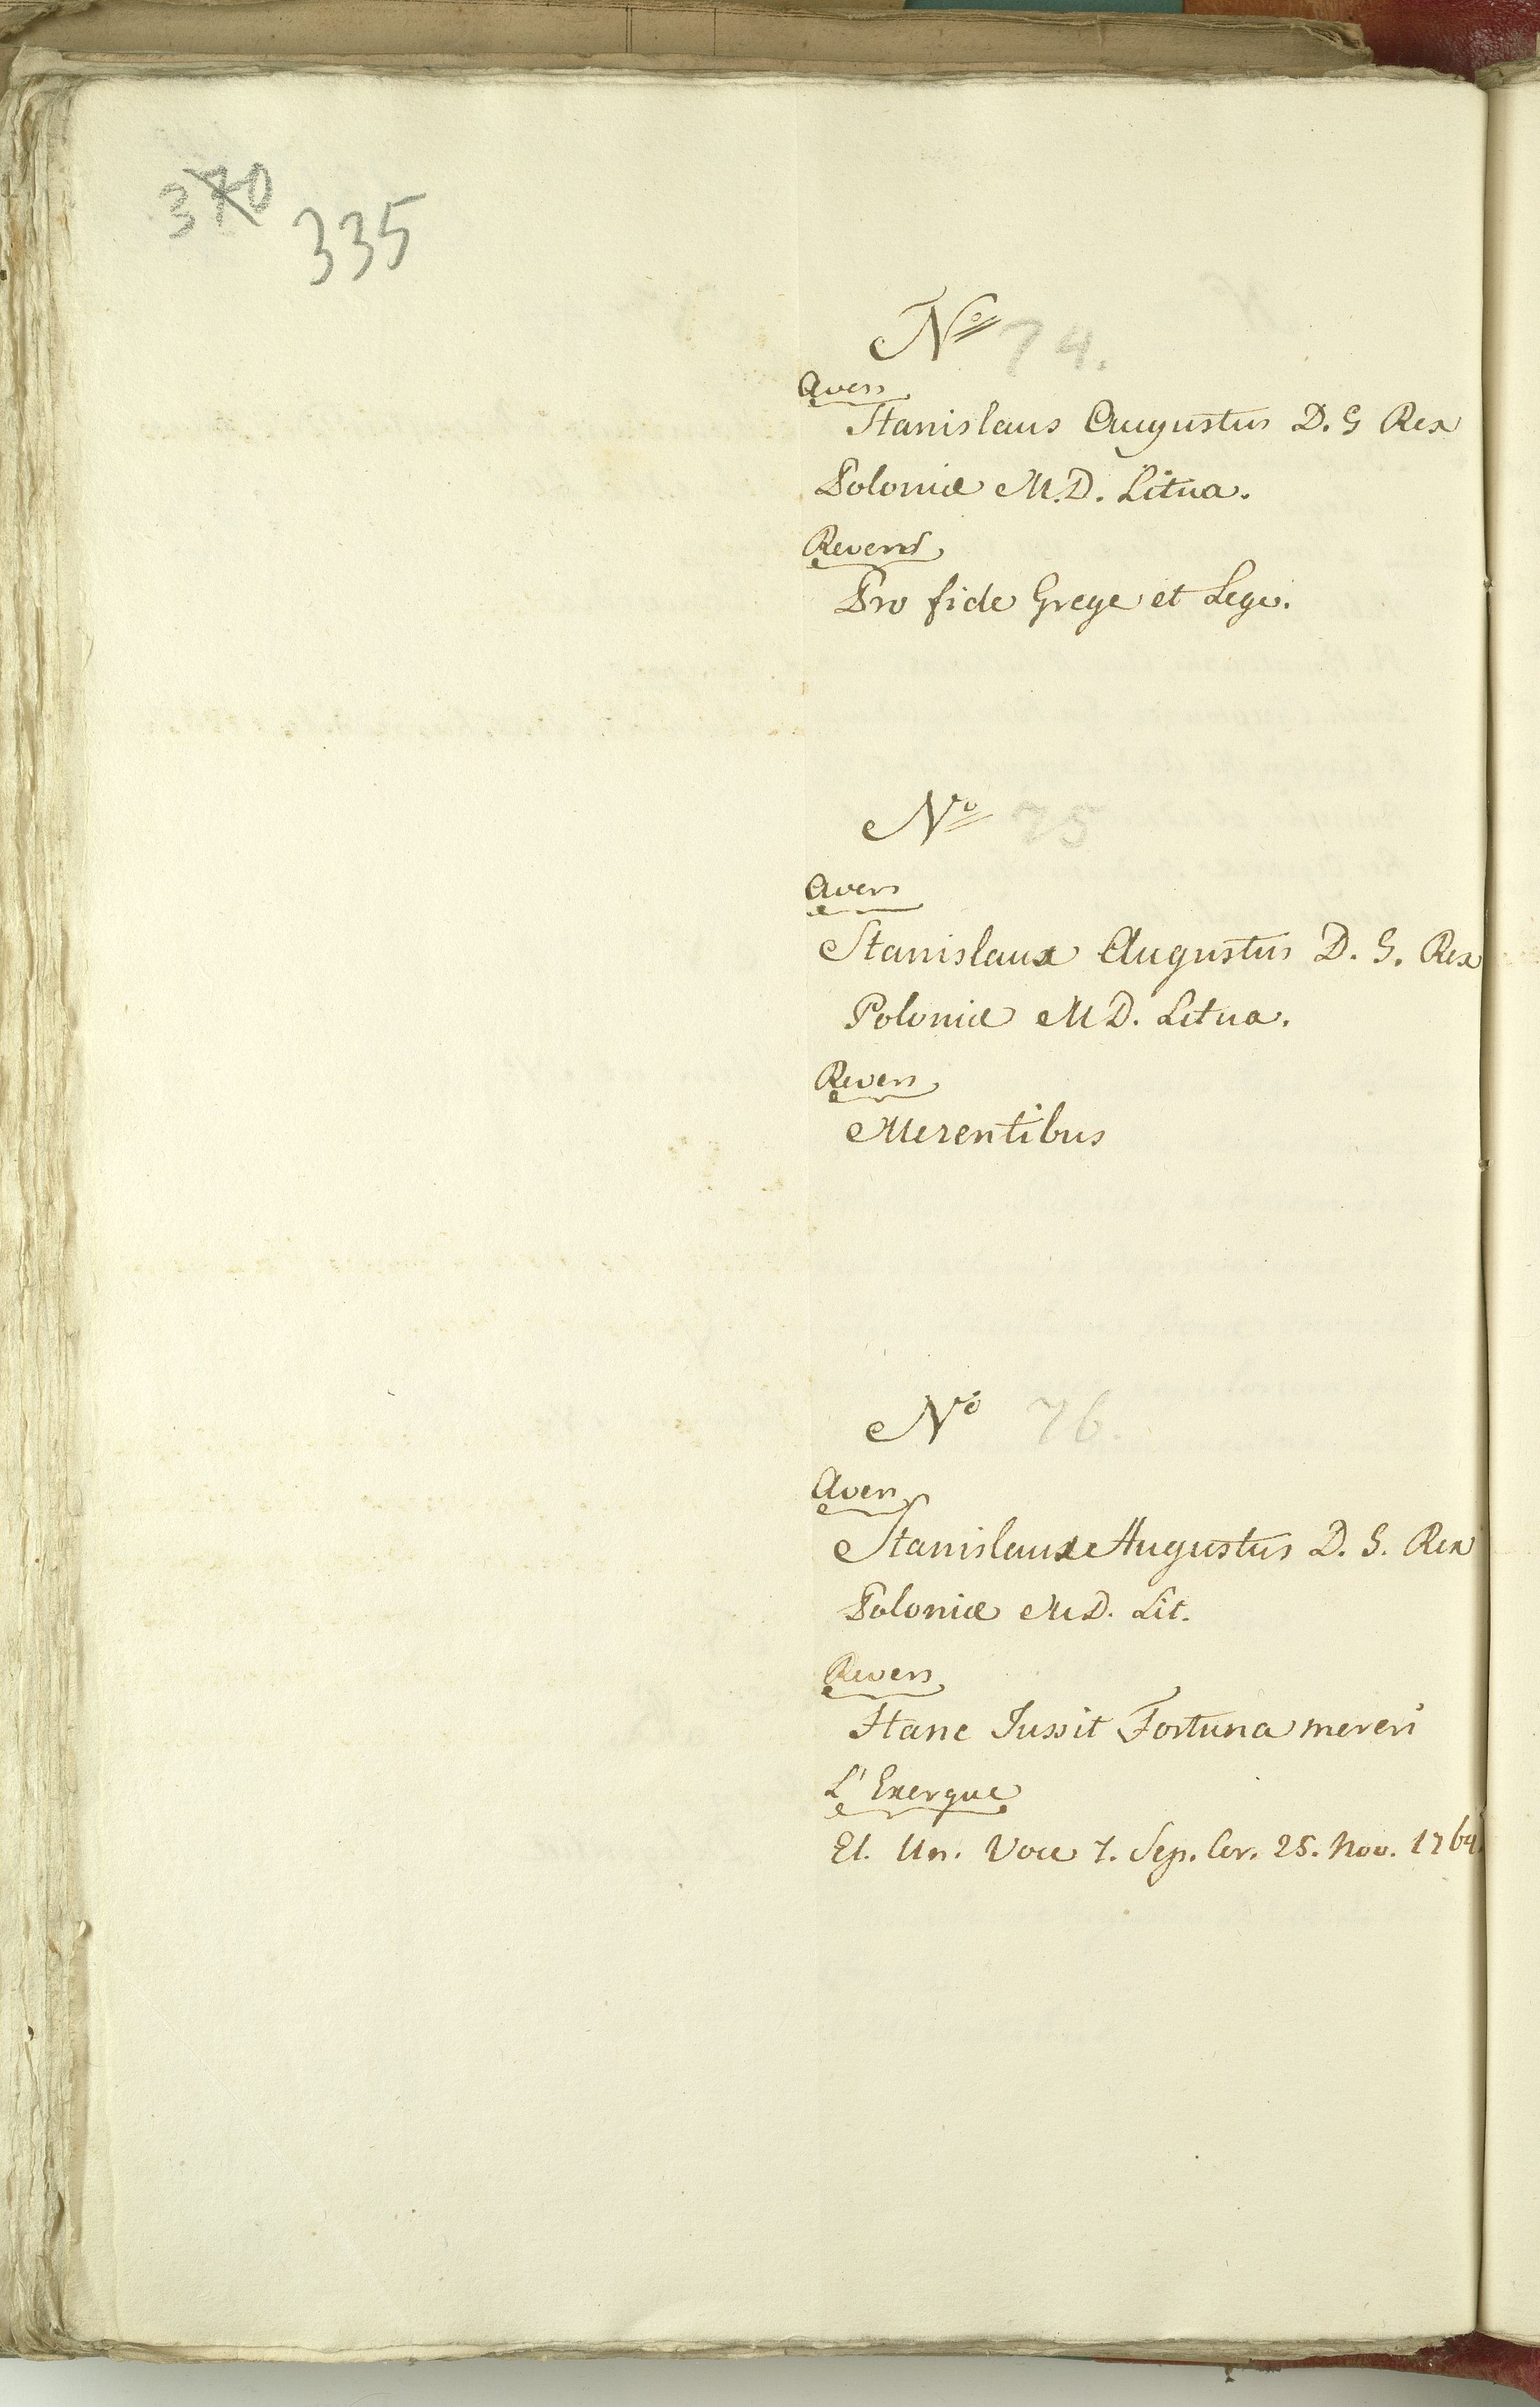 370 335
Nº 74.
Avers
Stanislaus Augustus D. G Rex
Poloniæ M.D. Litua.
Revers
Pro fide Grege et Lege.
Nº 75
Avers
Stanislaus Augustus D. G. Rex
Poloniæ M D. Litua.
Revers
Merentibus
Nº 76.
Avers
Stanislaus Augustus D. G. Rex
Poloniæ M D. Lit.
Revers
Hanc Jussit Fortuna mereri
L'Exergue
El. Un. Voce 7. Sep. Cor. 25. Nov. 1764